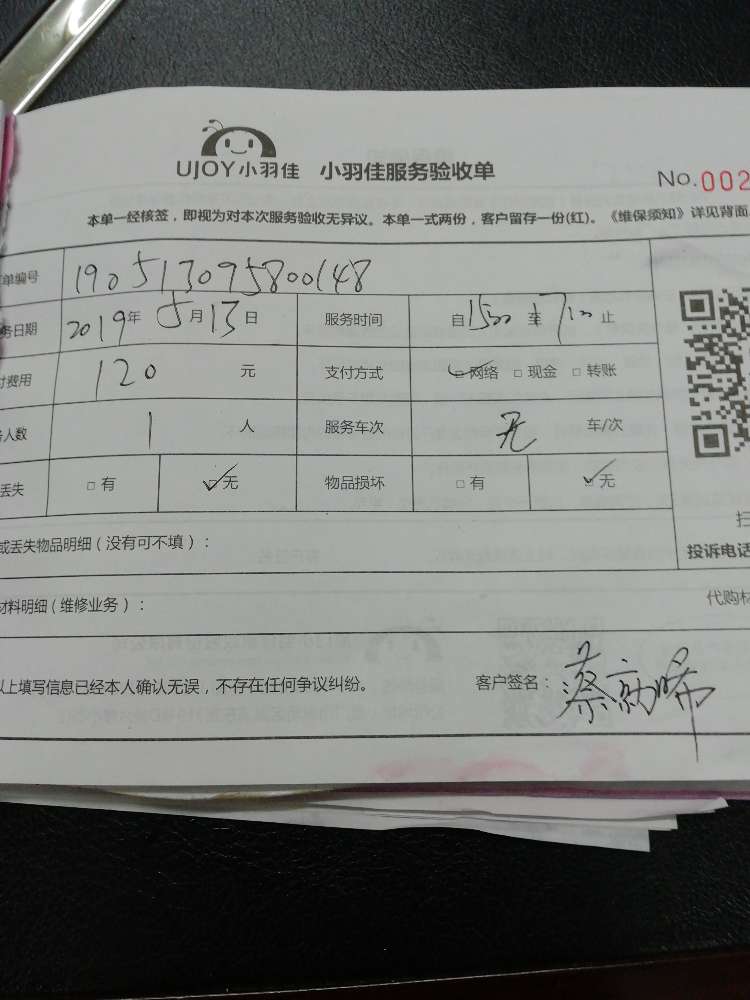 UJOY小羽佳 小羽佳服务验收单
No.002
本单一经核签，即视为对本次服务验收无异议。本单一式两份，客户留存一份(红)。《维保须知》详见背面
单编号 190513095800148
务日期 2019年 5月 13日 服务时间 自1500至 止
付费用 120 元 支付方式 网络 现金 转账
人数 1 人 服务车次 无 车/次
丢失 有 无 物品损坏 有 无
或丢失物品明细（没有可不填）：
扫
投诉电话
材料明细（维修业务）：
代购材
以上填写信息已经本人确认无误，不存在任何争议纠纷。 客户签名：蔡